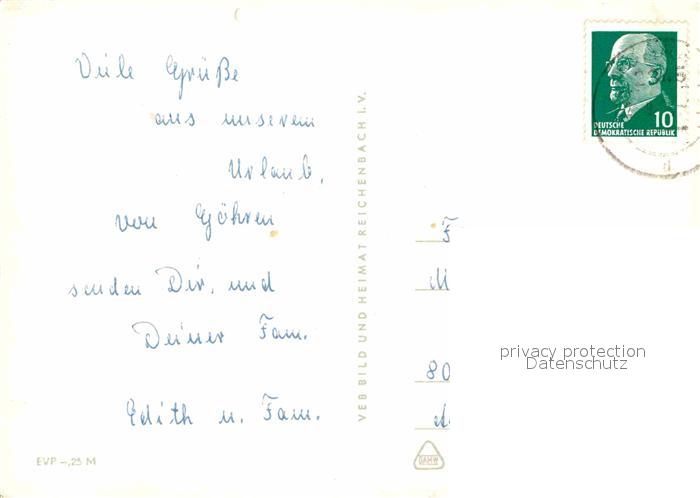 Viele Grüße
aus unserem
Urlaub,
von Göhren
senden Dir, und
Deiner Fam.
Edith u. Fam.
EVP –,25 M
VEB BILD UND HEIMAT REICHENBACH I. V.
DEUTSCHE
DEMOKRATISCHE REPUBLIK
10
F
M
80
privacy protection
Datenschutz